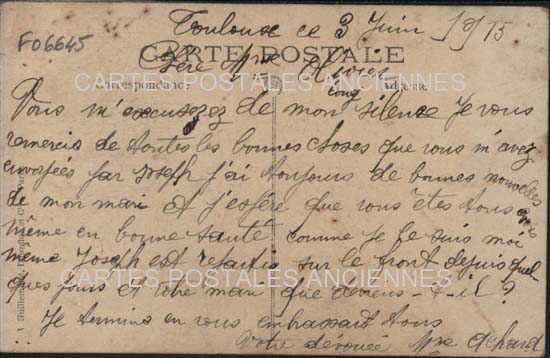 Toulouse ce 3 Juin 1915
F06645
CARTE POSTALE
Chère Mme Olivier
CARTES POSTALES ANCIENNES
Correspondance
Adresse
Vous m'excuserez de mon silence Je vous
remercie de toutes les bonnes choses que vous m'avez
envoyées par Joseph j'ai toujours de bonnes nouvelles
de mon mari et j'espère que vous êtes tous
même en bonne santé comme je le suis moi
même Joseph est reparti sur le front depuis quel
CARTES POSTALES ANCIENNES
ques jours et votre mari que deviens-t-il?
Je termine en vous embrassant tous
Votre dévouée Mme Achard